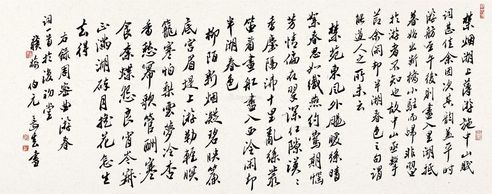 禁烟湖上薄游施中山賦
词甚佳余因次其韵盖平时
游舫至午後則盡入里湖抵
暮始出断橋小駐而歸非習
於游者不知也故中山亟擊
節余闲却半湖春色之句謂
能道人之所未云
禁苑東風外飏暖絲晴
絮春思如織燕約鶯期惱
芳情偏在翠深紅隙漠漠
香塵隔沸十里亂絲叢
笛看畫船盡入西泠闲却
半湖春色
柳陌新烟凝碧映簾
底宮眉堤上游勒輕暝
籠寒怕梨雲夢冷杏
香愁幂歌管酬寒
食奈蝶怨良宵岑寂
正滿湖碎月摇花怎生
去得
右錄周密曲游春
词一首於 初堂
伯元 書